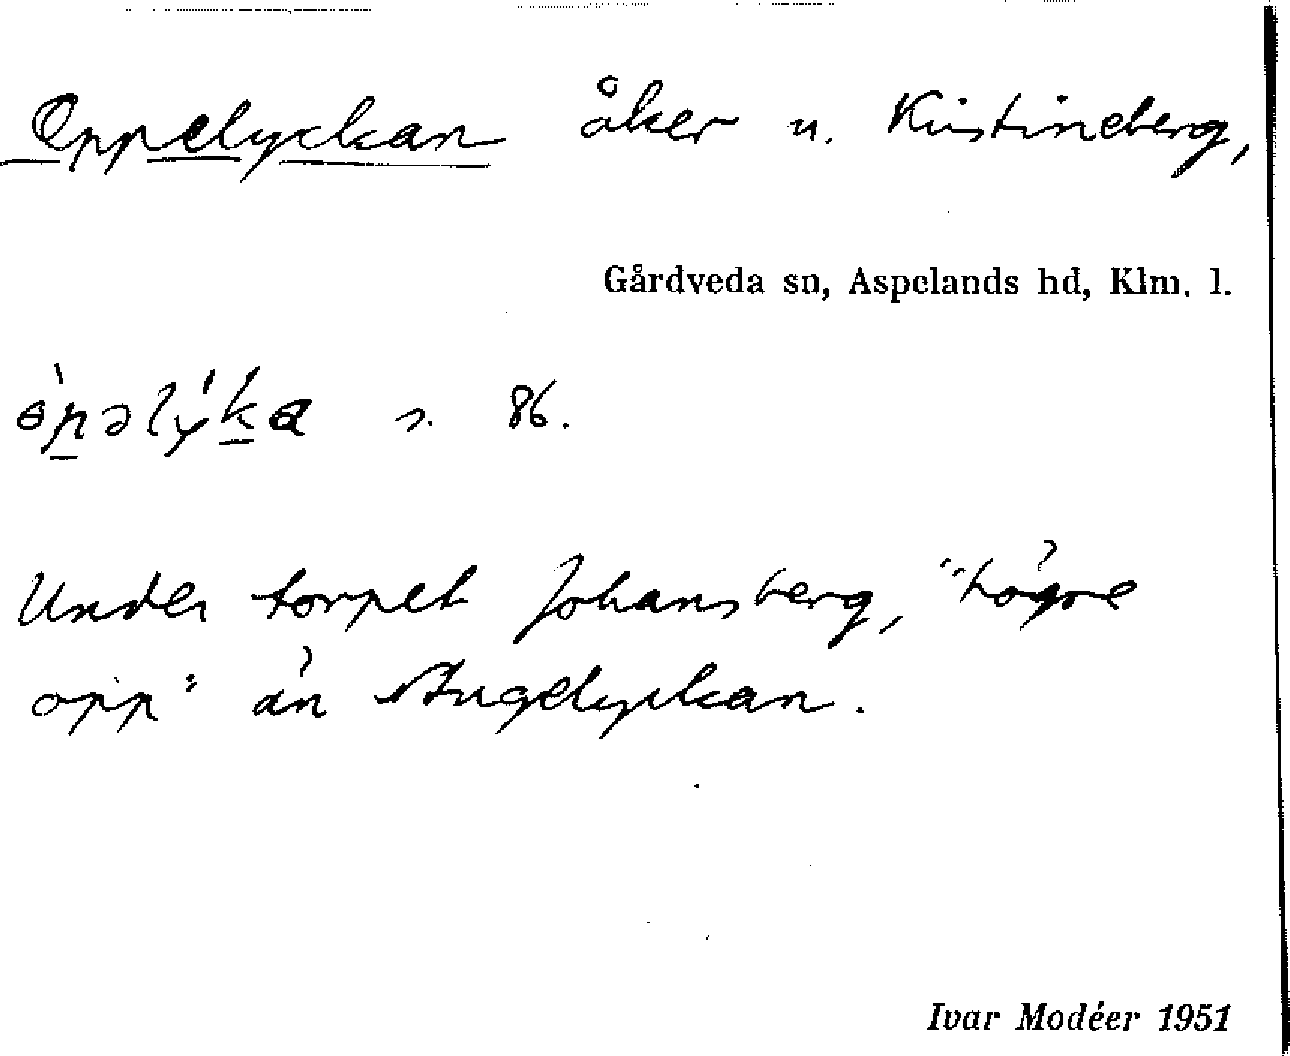 Oppelyckan åker u. Kristineberg,
Gårdveda sn, Aspelands hd, Klm. l.
s. 86.
Under torpet Johansberg, "högre
opp" än Ängelyckan.
Ivar Modéer 1951